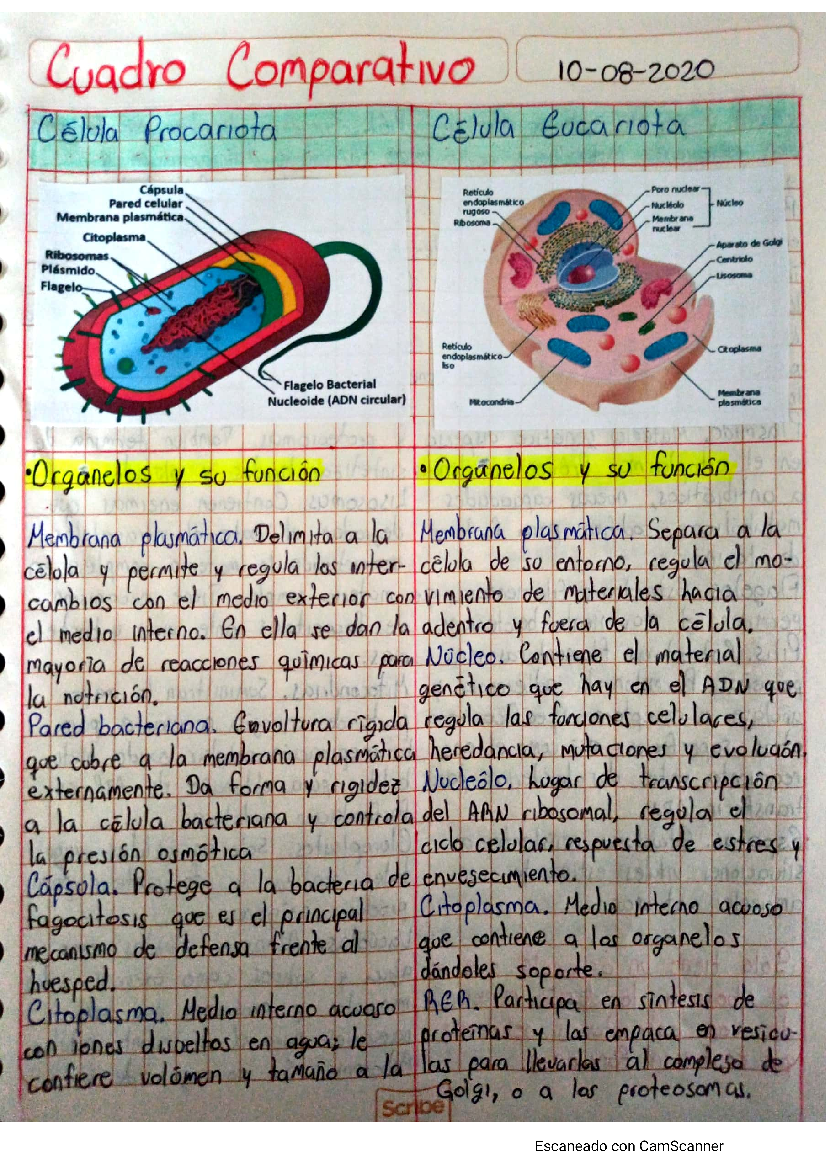 Cuadro Comparativo
10-08-2020
Célula Procariota
Célula Eucariota
Cápsula
Pared celular
Membrana plasmática
Citoplasma
Ribosomas
Plásmido
Flagelo
Flagelo Bacterial
Nucleoide (ADN circular)
Retículo
endoplasmático
rugoso
Ribosoma
Poro nuclear
Nucléolo
Membrana
nuclear
Núcleo
Aparato de Golgi
Centriolo
Lisosoma
Retículo
endoplasmático
liso
Citoplasma
Mitocondria
Membrana
plasmática
•Organelos y su función
Membrana plasmática. Delimita a la
célula y permite y regula los inter-
cambios con el medio exterior con
el medio interno. En ella se dan la
mayoría de reacciones químicas para
la nutrición.
Pared bacteriana. Envoltura rígida
que cubre a la membrana plasmática
externamente. Da forma y rigidez
a la célula bacteriana y controla
la presión osmótica
Cápsula. Protege a la bacteria de
fagocitosis que es el principal
mecanismo de defensa frente al
huesped.
Citoplasma. Medio interno acuoso
con iones disueltos en agua; le
confiere volúmen y tamaño a la
•Organelos y su función
Membrana plasmática. Separa a la
célula de su entorno, regula el mo-
vimiento de materiales hacia
adentro y fuera de la célula.
Núcleo. Contiene el material
genético que hay en el ADN que
regula las funciones celulares,
heredancia, mutaciones y evolución.
Nucleólo. Lugar de transcripción
del ARN ribosomal, regula el
ciclo celular, respuesta de estres y
envesecimiento.
Citoplasma. Medio interno acuoso
que contiene a los organelos
dándoles soporte.
RER. Participa en síntesis de
proteínas y las empaca en vesícu-
las para llevarlas al complejo de
Golgi, o a los proteosomas.
Scribe
Escaneado con CamScanner